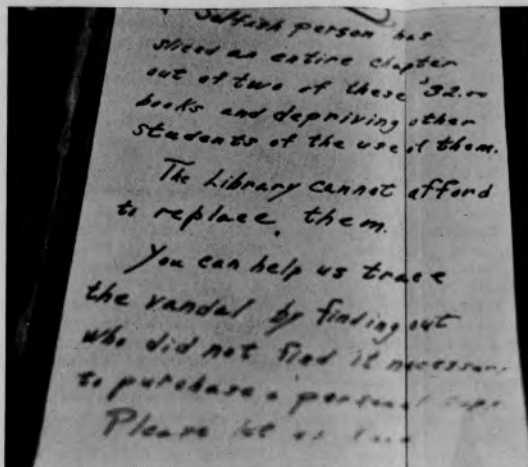 Selfish person has
sliced an entire chapter
out of two of these $32.00
books and depriving other
students of the use of them.
The Library cannot afford
to replace them.
You can help us trace
the vandal by finding out
who did not find it necessary
to purchase a personal copy.
Please let us